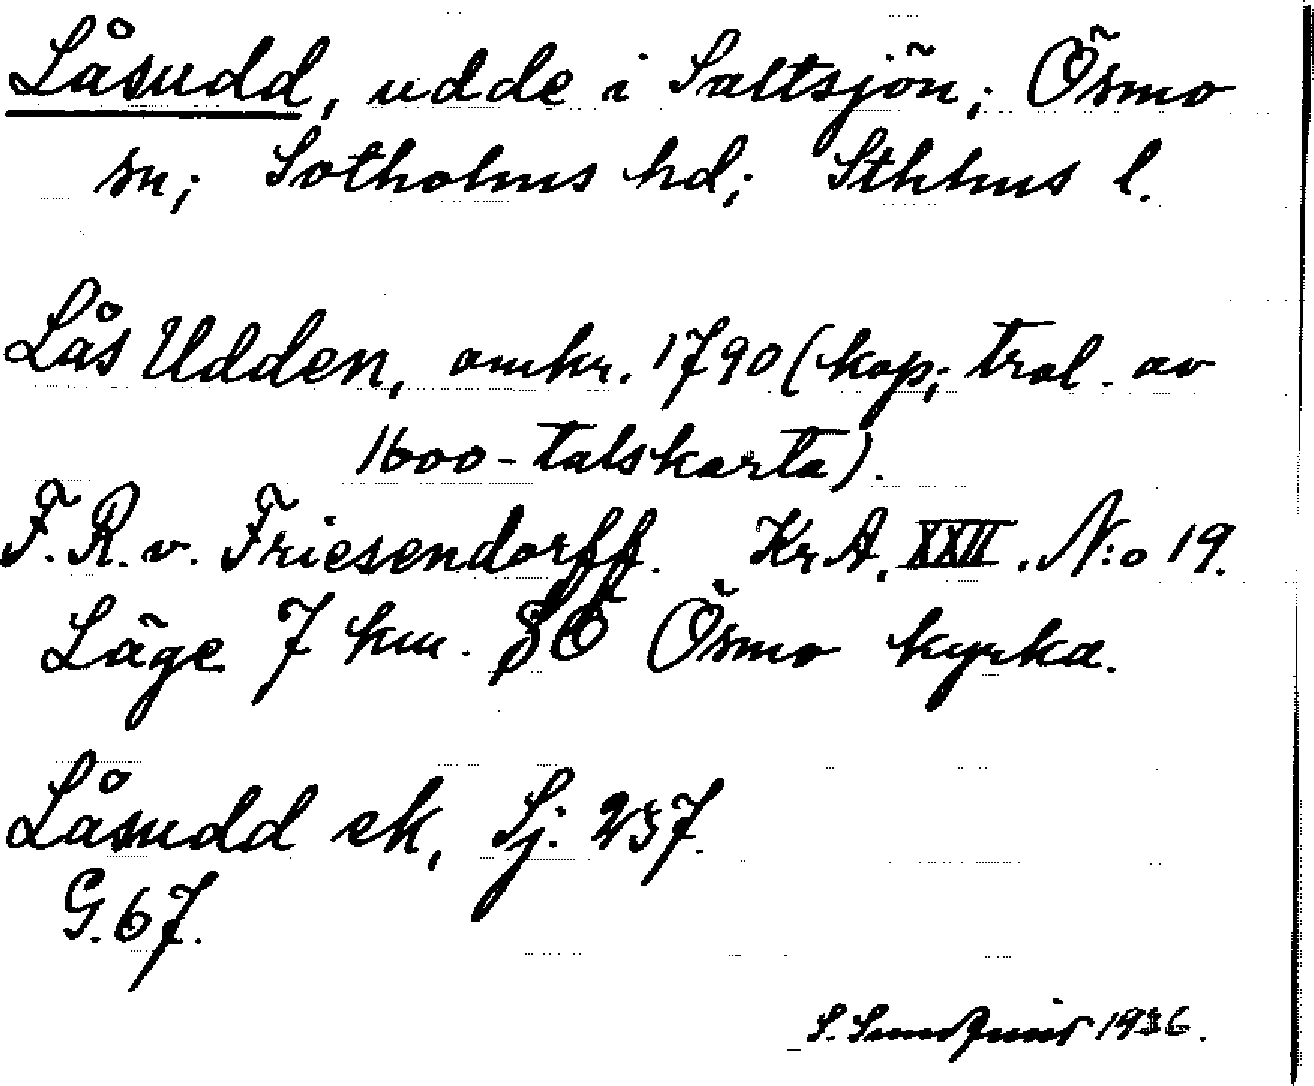 Låsudd, udde i Saltsjön; Ösmo
sn; Sotholms hd; Sthlms l.
Lås Udden, omkr. 1790 (kop; trol. av
1600-talskarta).
F. R. v. Friesendorff. Kr A. XXII. N:o 19.
Läge 7 km. SO Ösmo kyrka.
Låsudd ek, Sj. 237.
G. 67.
S. 1936.